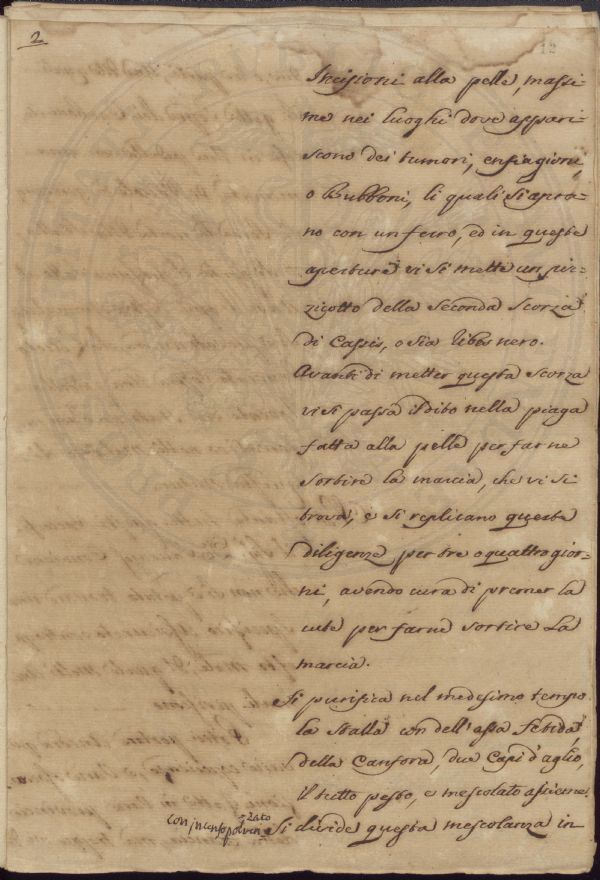 2
12
Incisioni alla pelle, massi-
me nei luoghi dove appari-
scono dei tumori, enfiagioni
o Bubboni, li quali si apro-
no con un ferro, ed in queste
aperture vi si mette un piz-
zigotto della seconda scorza
di Cassis, o sia Ribes nero.
Avanti di metter questa scorza
vi si passa il dito nella piaga
fatta alla pelle per farne
sortire la marcia, che vi si
trova, e si replicano queste
diligenze per tre o quattro gior-
ni, avendo cura di premer la
cute per farne sortire la
marcia.
Si purifica nel medesimo tempo
la stalla con dell'assa fetida,
della Canfora, due Capi d'aglio,
il tutto pesto, e mescolato assieme
Si divide questa mescolanza in
con polveri-
-zato